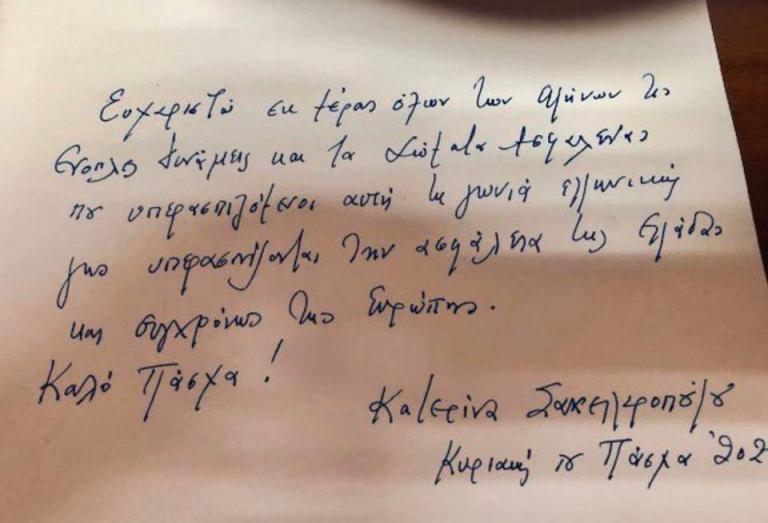 Ευχαριστώ εκ μέρους όλων των Ελλήνων τις
Ένοπλες Δυνάμεις και τα Σώματα Ασφαλείας
που υπερασπιζόμενοι αυτή τη γωνιά ελληνικής
γης υπερασπίζονται την ασφάλεια της Ελλάδας
και συγχρόνως της Ευρώπης.
Καλό Πάσχα!
Κατερίνα Σακελλαροπούλου
Κυριακή του Πάσχα